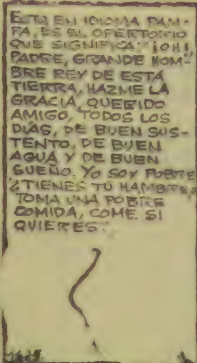 ESTO, EN IDIOMA PAM-
PA, ES EL OFERTORIO
QUE SIGNIFICA: "¡OH!,
PADRE, GRANDE HOM-
BRE REY DE ESTA
TIERRA, HAZME LA
GRACIA, QUERIDO
AMIGO, TODOS LOS
DÍAS, DE BUEN SUS-
TENTO, DE BUEN
AGUA Y DE BUEN
SUEÑO. YO SOY POBRE
¿TIENES TÚ HAMBRE?
TOMA UNA POBRE
COMIDA, COME SI
QUIERES".